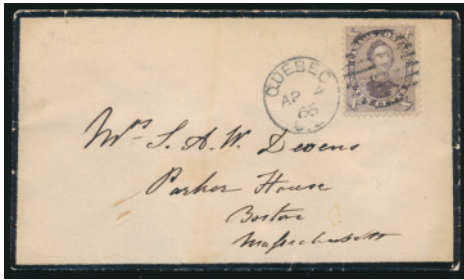 QUEBEC
AP 4
66
C.E.
Mrs S. A. W. Devens
Parker House
Boston
Massachusetts